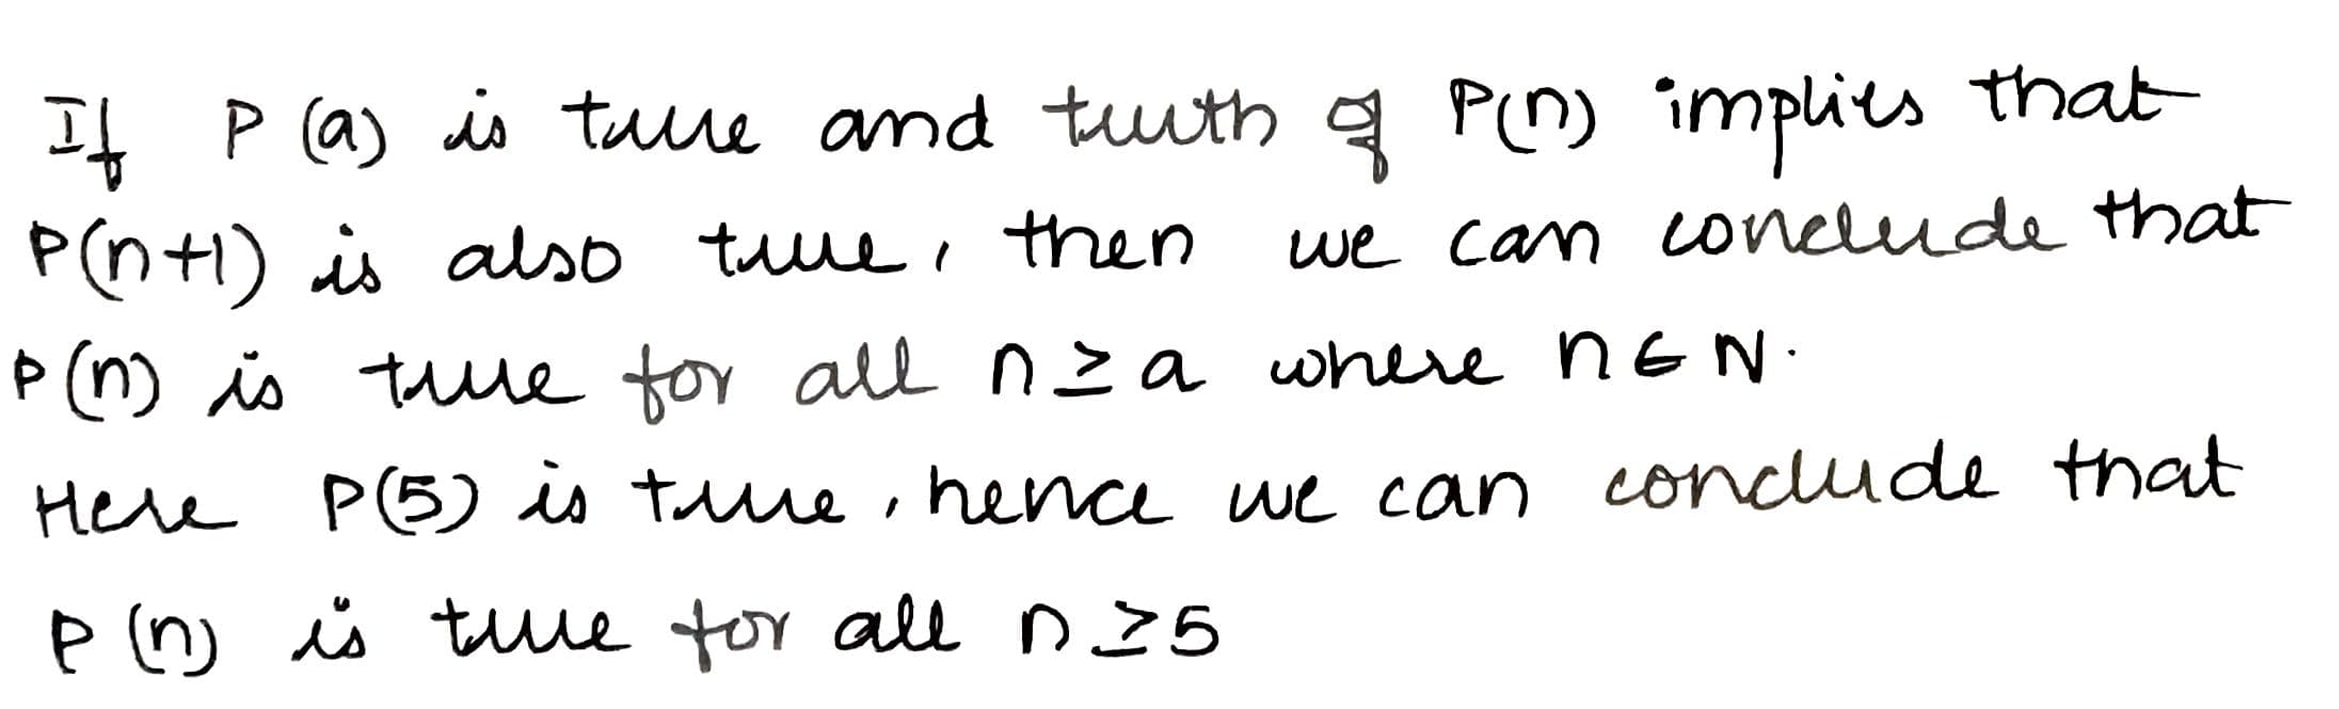 If P(a) is true and truth of P(n) implies that
P(n+1) is also true, then we can conclude that
P(n) is true for all n ≥ a where n ∈ N.
Here P(5) is true, hence we can conclude that
P(n) is true for all n ≥ 5